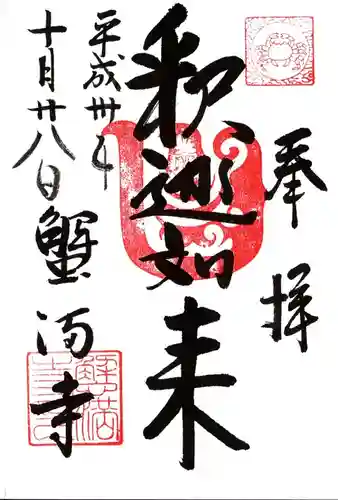 奉拝
釈迦如来
平成卅年
十月廿八日
蟹満寺